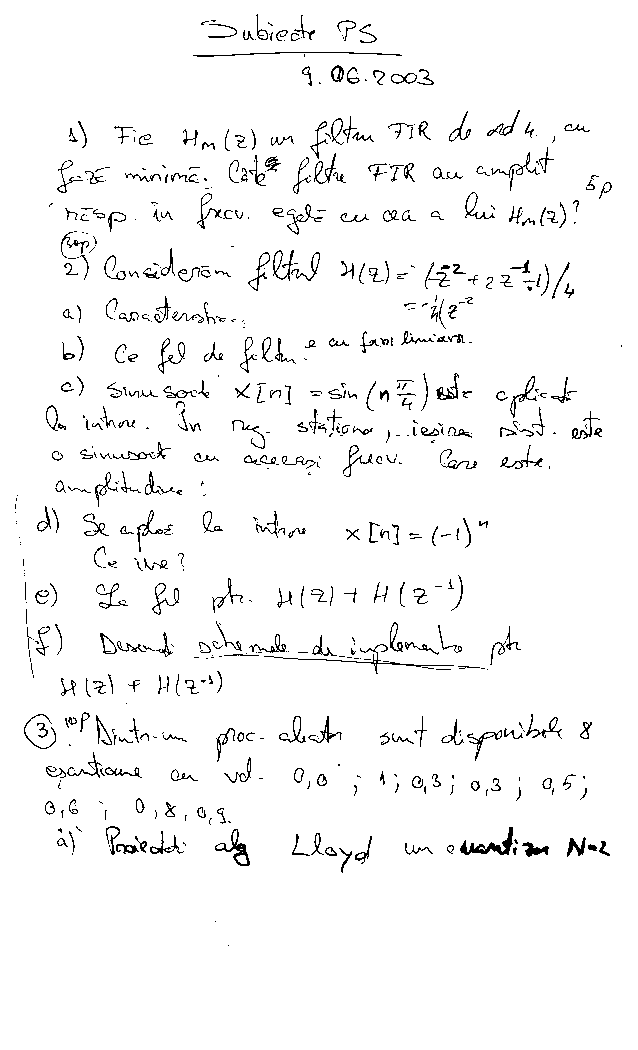 Subiecte PS
9.06.2003
1) Fie Hm(z) un filtru FIR de ord 4, cu
fază minimă. Câte filtre FIR au amplit
răsp. în frecv. egală cu cea a lui Hm(z)? 5p
2) Considerăm filtrul H(z) = (z^-2 + 2z^-1 + 1)/4
a) Caracteristica
b) Ce fel de filtru e cu fază liniară.
c) sinusoida x[n] = sin(n π/4) este aplicată
la intrare. În reg. staționar, ieșirea sist. este
o sinusoidă cu aceeași frecv. Care este
amplitudinea?
d) Se aplică la intrare x[n] = (-1)^n
Ce iese?
e) La fel ptr. H(z) + H(z^-1)
f) Desenați schemele de implementare ptr
H(z) + H(z^-1)
3) 10p Dintr-un proc. aleator sunt disponibile 8
eșantioane cu val. 0,0; 1; 0,3; 0,3; 0,5;
0,6; 0,8, 0,9.
a) Proiectați alg Lloyd un cuantizor N=2